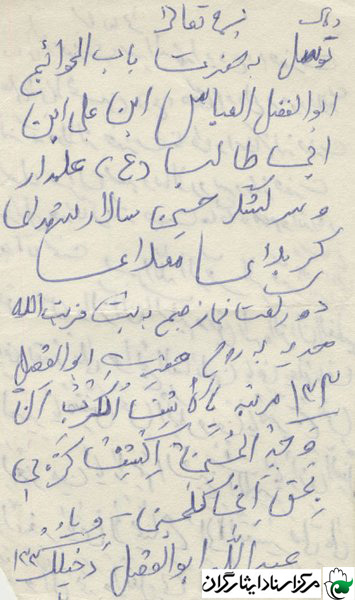 بسمه تعالی
توسل به حضرت باب الحوائج
ابوالفضل العباس ابن علی ابن
ابی طالب (ع) علمدار
و سر لشکر حسین سالار شهدای
کربلای معلا
دو رکعت نماز صبح به نیت قربت الله
هدیه به روح حضرت ابوالفضل
۱۳۳ مرتبه یا کاشِفَ الْکَرْبِ عَن
وَجْهِ الْحُسَین اِکْشِفْ کَرْبی
بِحَقِ اَخیکَ الْحُسَین
عبدالله ابوالفضل دخیلک ۱۳۳
مرکز اسناد ایثارگران